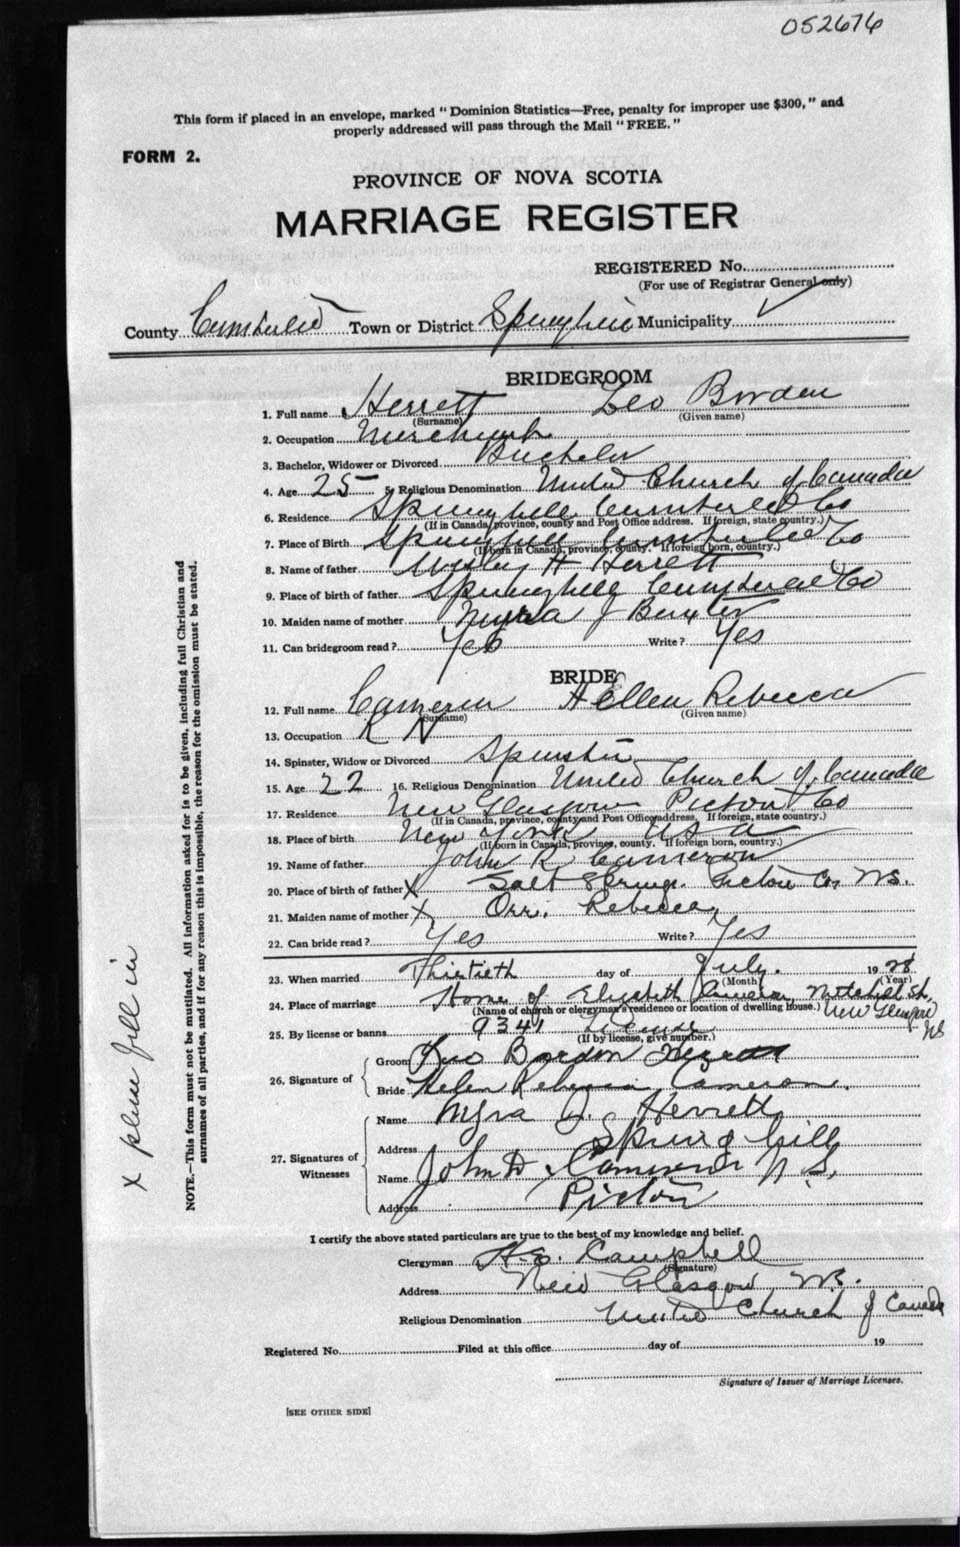 052676
This form if placed in an envelope, marked "Dominion Statistics—Free, penalty for improper use $300," and
properly addressed will pass through the Mail "FREE."
FORM 2.
PROVINCE OF NOVA SCOTIA
MARRIAGE REGISTER
REGISTERED No.
(For use of Registrar General only)
County Cumberland Town or District Springhill Municipality
BRIDEGROOM
1. Full name Herrett Leo Borden
(Surname) (Given name)
2. Occupation Merchant
3. Bachelor, Widower or Divorced Bachelor
4. Age 25 5. Religious Denomination United Church of Canada
6. Residence Springhill Cumberland Co
(If in Canada, province, county and Post Office address. If foreign, state country.)
7. Place of Birth Springhill Cumberland Co
(If born in Canada, province, county. If foreign born, country.)
8. Name of father H Herrett
9. Place of birth of father Springhill Cumberland Co
10. Maiden name of mother Myra J Baxter
11. Can bridegroom read? Yes Write? Yes
BRIDE
12. Full name Cameron Hellen Rebecca
(Surname) (Given name)
13. Occupation R N
14. Spinster, Widow or Divorced Spinster
15. Age 22 16. Religious Denomination United Church of Canada
17. Residence New Glasgow Pictou Co
(If in Canada, province, county and Post Office address. If foreign, state country.)
18. Place of birth New York U S A
(If born in Canada, province, county. If foreign born, country.)
19. Name of father John R Cameron
20. Place of birth of father X Salt Springs. Pictou Co. N.S.
21. Maiden name of mother X Orr, Rebecca,
22. Can bride read? Yes Write? Yes
23. When married Thirtieth day of July. 1928
(Month) (Year)
24. Place of marriage Home of Elizabeth Cameron, Mitchell St,
(Name of church or clergyman's residence or location of dwelling house.) New Glasgow
NS
25. By license or banns 9341 License
(If by license, give number.)
26. Signature of
Groom Leo Borden Herrett
Bride Helen Rebecca Cameron.
27. Signatures of Witnesses
Name Myra J. Herrett
Address Springhill
Name John D. Cameron N.S.
Address Pictou
I certify the above stated particulars are true to the best of my knowledge and belief.
Clergyman Campbell
(Signature)
Address New Glasgow N.S.
Religious Denomination United Church of Canada
Registered No. Filed at this office day of 19
Signature of Issuer of Marriage Licenses.
[SEE OTHER SIDE]
NOTE.—This form must not be mutilated. All information asked for is to be given, including full Christian and
surnames of all parties, and if for any reason this is impossible, the reason for the omission must be stated.
x please fill in